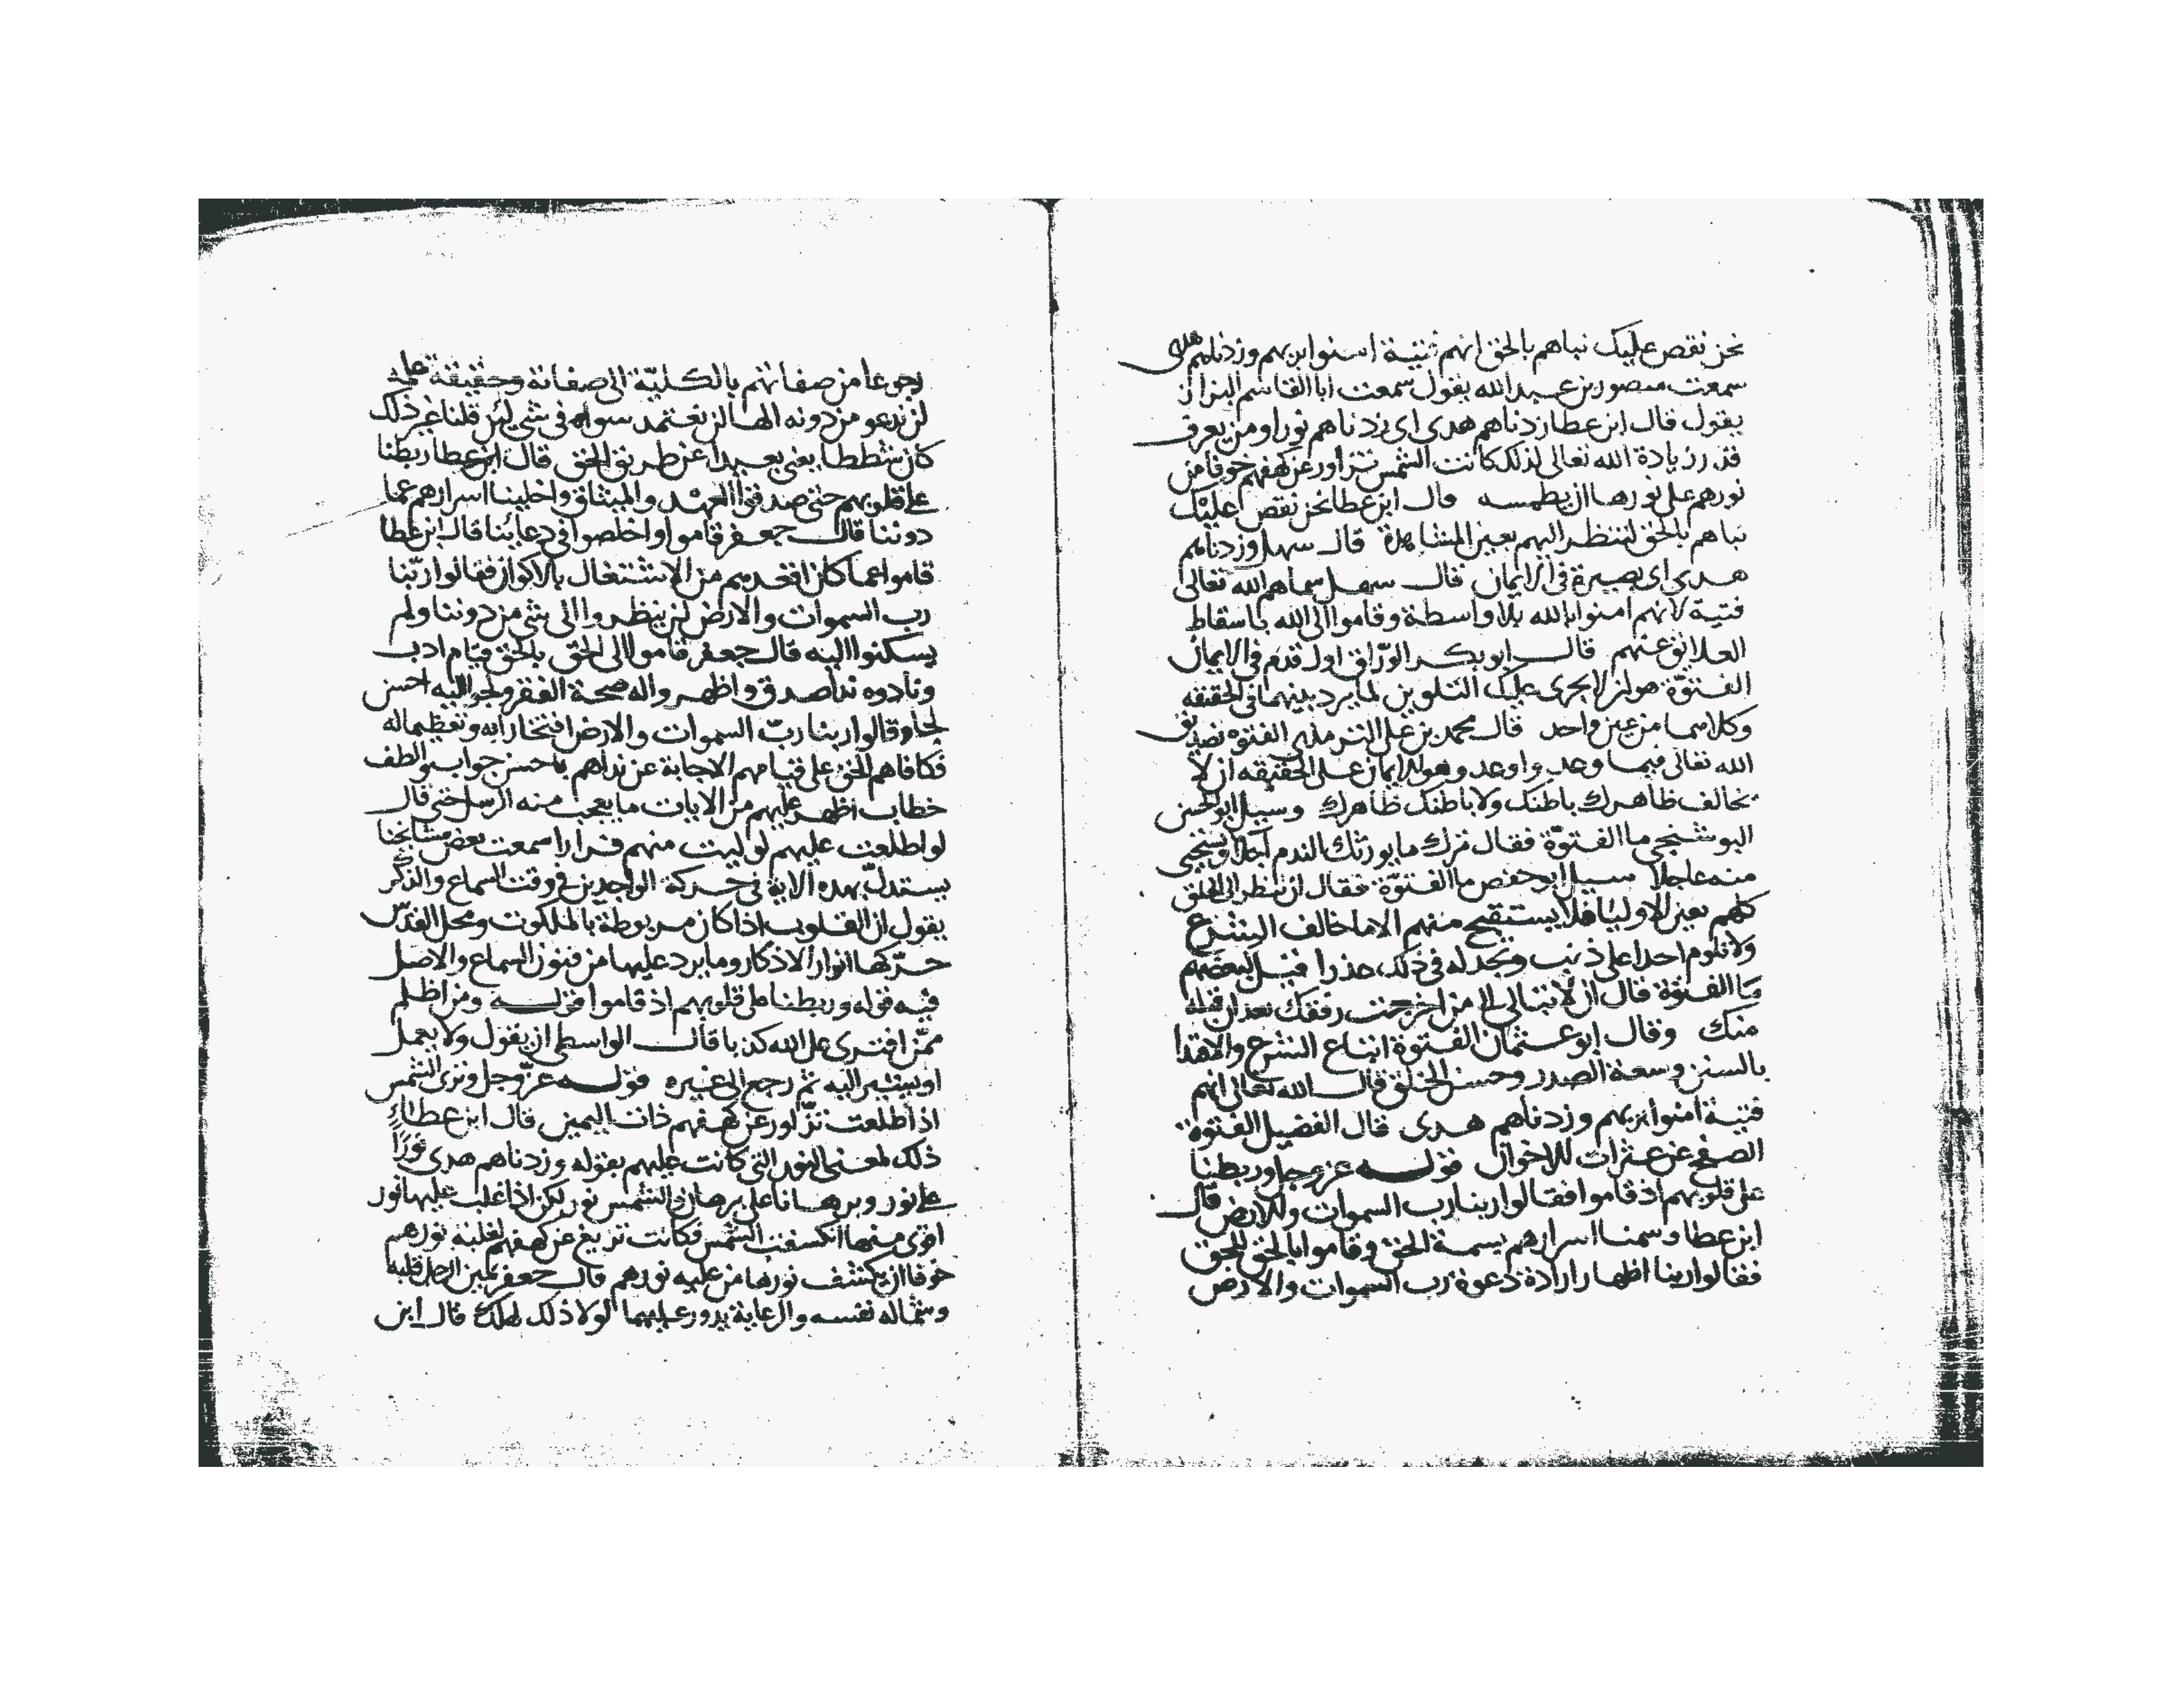 نحن نقص عليك نباهم بالحق انهم فتية امنوا بربهم وزدناهم هدى
سمعت منصور بن عبد الله يقول سمعت ابا القاسم البزاز
يقول قال ابن عطا زدناهم هدى اى زدناهم نورا ومن يعرف
قدر زيادة الله تعالى لذلك كانت الشمس تزاور عن كهفهم خوفا من
نورهم على نورها ان يطمسه قال ابن عطا نحن نقص عليك
نباهم بالحق لتنظر اليهم بعين المشاهدة قال سهل وزدناهم
هدى اى بصيرة فى الايمان قال سهل سماهم الله تعالى
فتية لانهم امنوا بالله بلا واسطة وقاموا الى الله باسقاط
العلايق عنهم قال ابو بكر الورّاق اول قدم فى الايمان
الفتوّة هو ان لا يجرى عليك التلوين لما يرد بينهما فى الحقيقه
وكلاهما من عين واحد قال محمد بن على الترمذى الفتوة تصديق
الله تعالى فيما وعد واوعد وهو الايمان على الحقيقه ان لا
يخالف ظاهرك باطنك ولا باطنك ظاهرك وسيل ابو الحسن
البوشنجى ما الفتوّة فقال ترك ما يورثك الندم آجلا ويستحيى
منه عاجلا سيل ابو حفص ما الفتوّة فقال ان تنظر الى الخلق
كلهم بعين الاوليا فلا يستقبح منهم الا ما خالف الشرع
ولا تلوم احدا على ذنب وتجد له فى ذلك عذرا قيل لبعضهم
ما الفتوة قال ان لا تبالى الى من اخرجت رفقك بعد ان قبله
منك وقال ابو عثمان الفتوة اتباع الشرع والاقتدا
بالسنن وسعة الصدر وحسن الخلق قال الله تعالى انهم
فتية امنوا بربهم وزدناهم هدى قال الفضيل الفتوة
الصفح عن عثرات الاخوان قوله عز وجل وربطنا
على قلوبهم اذ قاموا فقالوا ربنا رب السموات والارض قال
ابن عطا وسمنا اسرارهم بسمة الحق وقاموا بالحق للحق
فقالوا ربنا اظهار ارادة دعوة رب السموات والارض
رجوعا من صفاتهم بالكليّة الى صفاته وحقيقة علمه
لن ندعو من دونه الها لن نعتمد سواه فى شى لئن قلنا غير ذلك
كان شططا يعنى بعيدا عن طريق الحق قال ابن عطا ربطنا
على قلوبهم حتى صدقوا العهد والميثاق واخلينا اسرارهم عما
دوننا قال جعفر قاموا واخلصوا فى دعائنا قال ابن عطا
قاموا عما كان اقعدهم من الاشتغال بالاكوان فقالوا ربّنا
رب السموات والارض لن ينظروا الى شى من دوننا ولم
يسكنوا اليه قال جعفر قاموا الى الحق بالحق قيام ادب
ونادوه ندا صدق واظهروا له صحة الفقر ولجوا اليه احسن
لجا وقالوا ربنا ربّ السموات والارض افتخارا به وتعظيما له
فكافاهم الحق على قيامهم الاجابة عن نداهم باحسن جواب والطف
خطاب اظهر عليهم من الايات ما يعجب منه الرسل حتى قال
لو اطلعت عليهم لوليت منهم فرارا سمعت بعض مشايخنا
يستدلّ بهذه الاية فى حركة الواجدين فى وقت السماع والذكر
يقول ان القلوب اذا كان مربوطة بالملكوت ومحل القدس
حرّكها انوار الاذكار وما يرد عليها من فنون السماع والاصل
فيه قوله وربطنا على قلوبهم اذ قاموا قوله ومن اظلم
ممّن افترى على الله كذبا قال الواسطى ان يقول ولا يعمل
او يشير اليه ثم رجع الى غيره قوله عزّ وجل وترى الشمس
اذا طلعت تزّاور عن كهفهم ذات اليمين قال ابن عطا
ذلك لمعنى النور التى كانت عليهم بقوله وزدناهم هدى نورًا
على نور وبرهانا على برهان الشمس نور لكن اذا غلب عليها نور
اقوى منها انكسفت الشمس فكانت تزيغ عن كهفهم لغلبة نورهم
خوفا ان ينكشف نورها من غلبة نورهم قال جعفر يمين الرجل قلبه
وشماله نفسه والرعاية يدور عليهما لولا ذلك لهلك قال ابن